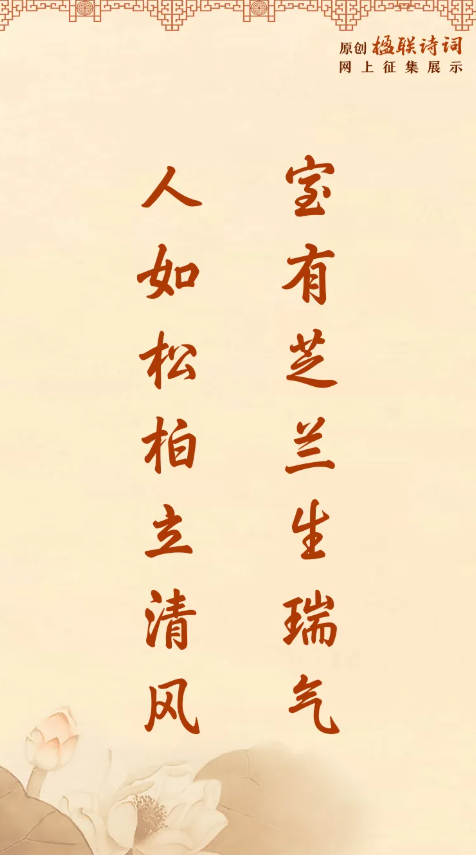 原创 楹联诗词
网上征集展示
室有芝兰生瑞气
人如松柏立清风